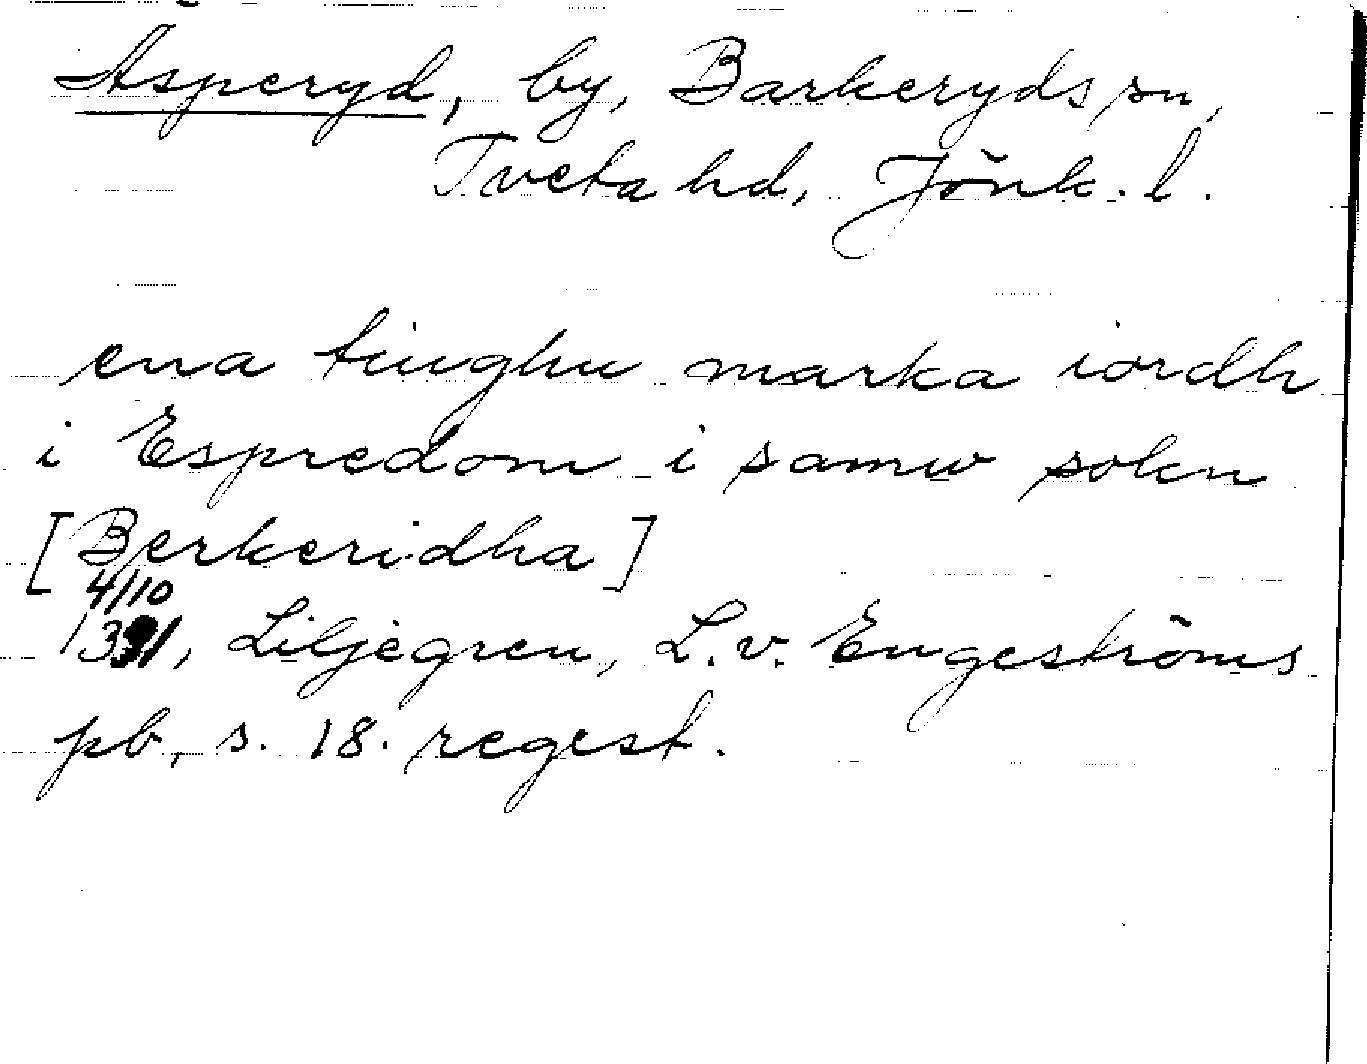 Asperyd, by, Barkeryds sn,
Tveta hd, Jönk. l.
ena tinghu marka iordh
i Espredom i samw sokn
[Berkeridha]
4/10
1391, Liljegren, L. v. Engeströms
pb, s. 18. regest.